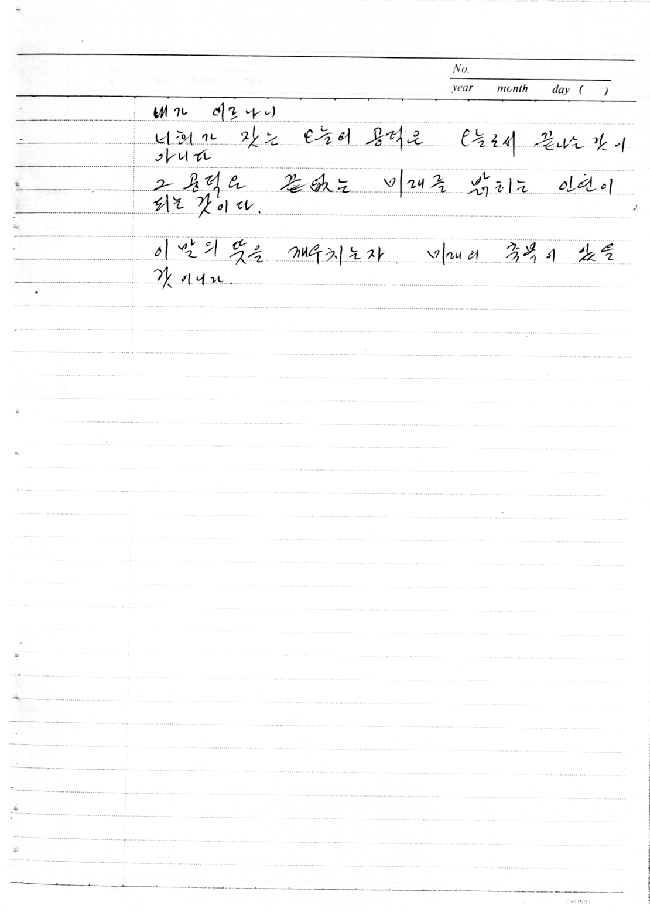 No.
year month day ( )
내가 이르나니
너희가 짓는 오늘에 공덕은 오늘로서 끝나는 것이
아니다
그 공덕은 끝없는 미래를 밝히는 인연이
되는 것이다.
이 말의 뜻을 깨우치는자 미래의 축복이 있을
것이니라.